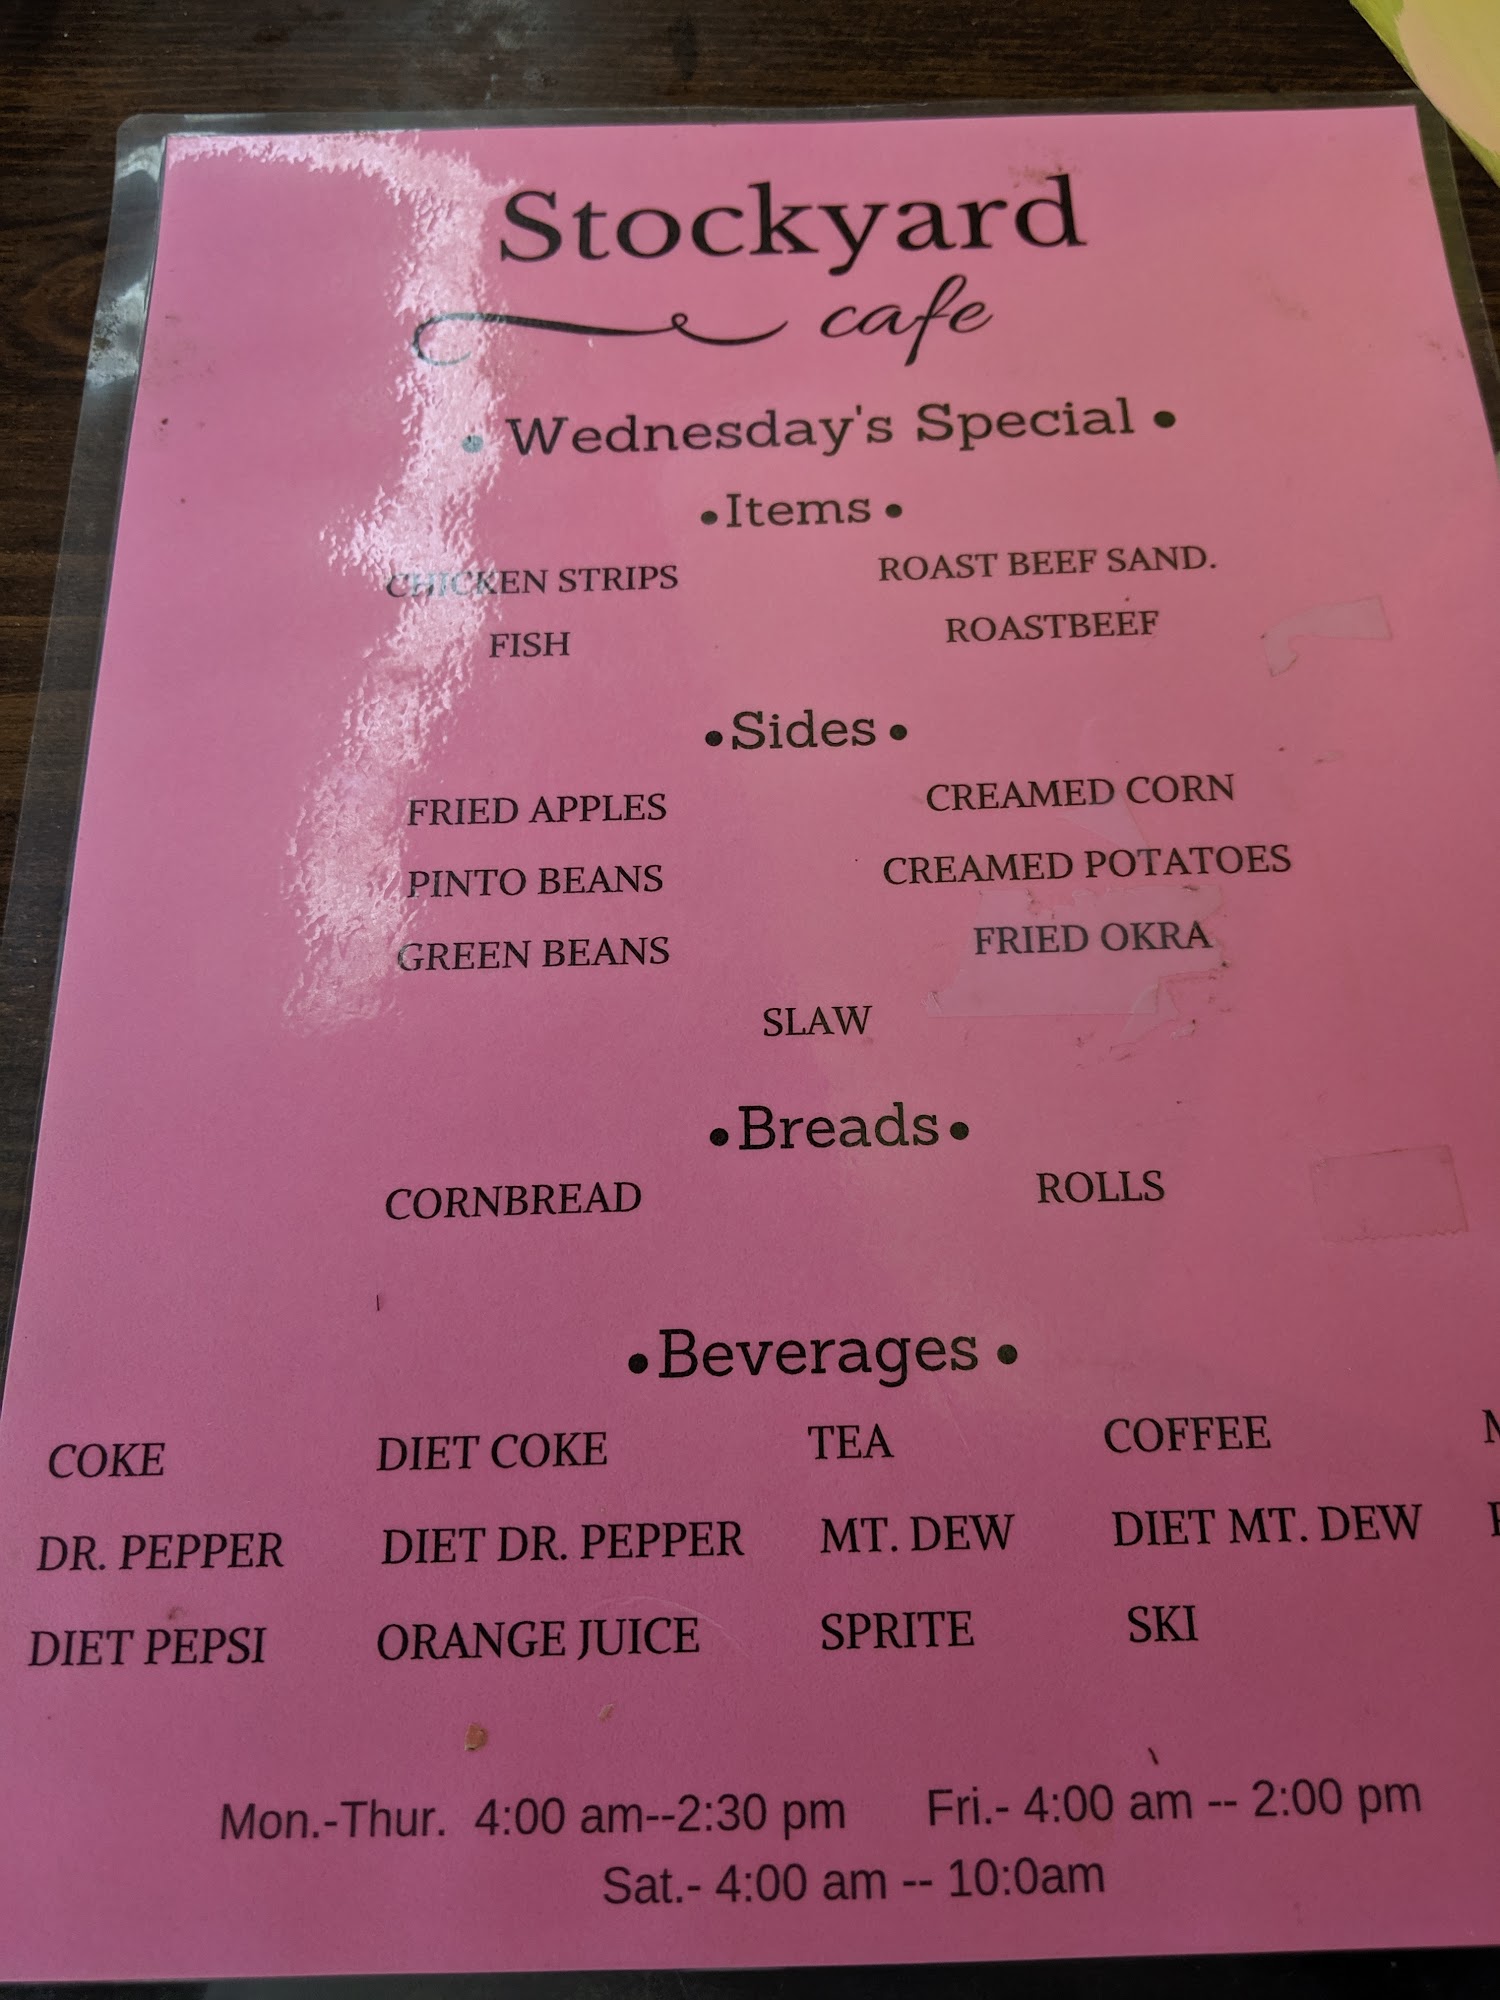 Stockyard
cafe
• Wednesday's Special •
•Items •
CHICKEN STRIPS ROAST BEEF SAND.
FISH ROASTBEEF
•Sides •
FRIED APPLES CREAMED CORN
PINTO BEANS CREAMED POTATOES
GREEN BEANS FRIED OKRA
SLAW
•Breads•
CORNBREAD ROLLS
•Beverages •
COKE DIET COKE TEA COFFEE
DR. PEPPER DIET DR. PEPPER MT. DEW DIET MT. DEW
DIET PEPSI ORANGE JUICE SPRITE SKI
Mon.-Thur. 4:00 am--2:30 pm Fri.- 4:00 am -- 2:00 pm
Sat.- 4:00 am -- 10:0am